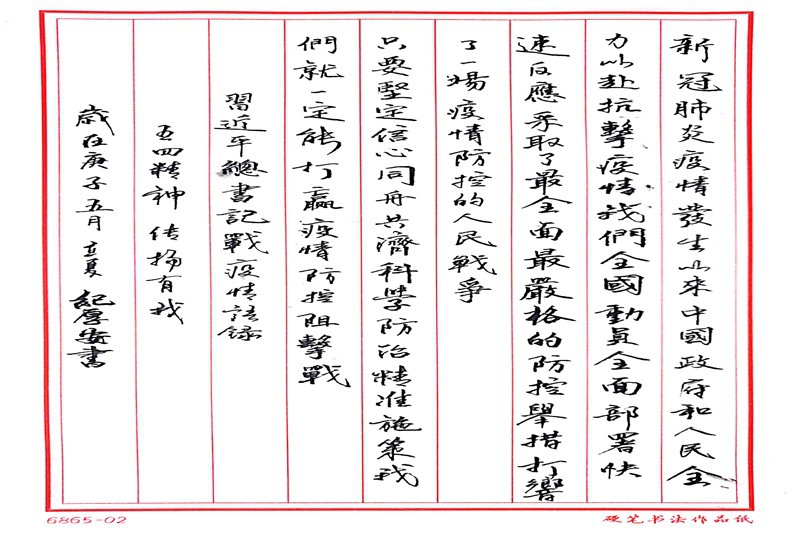 新冠肺炎疫情發生以來中國政府和人民全
力以赴抗擊疫情我們全國動員全面部署快
速反應采取了最全面最嚴格的防控舉措打響
了一場疫情防控的人民戰爭
只要堅定信心同舟共濟科學防治精准施策我
們就一定能打贏疫情防控阻擊戰
習近平總書記戰疫情語錄
五四精神 传扬有我
歲在庚子五月立夏 紀厚安書
6865-02
硬笔书法作品纸